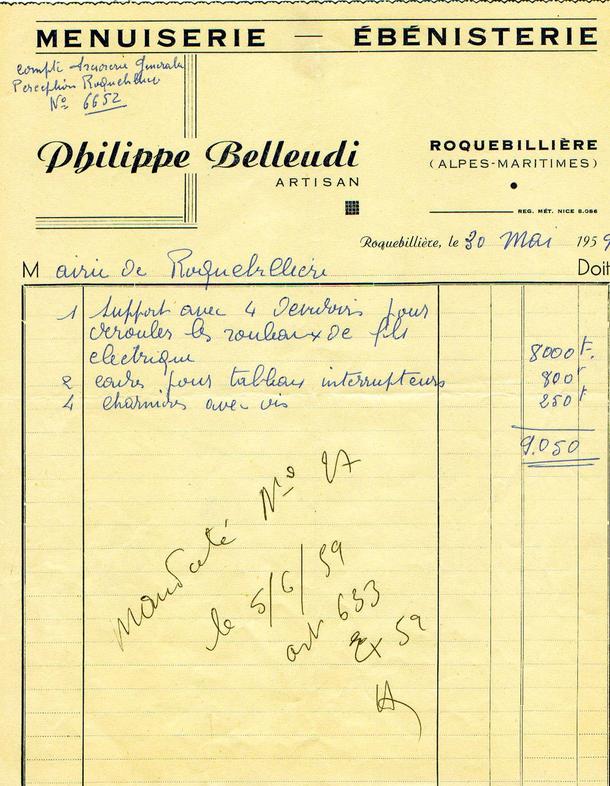 MENUISERIE — ÉBÉNISTERIE
compte trésorerie générale
Perception Roquebillière
N° 6652
Philippe Belleudi
ARTISAN
ROQUEBILLIÈRE
(ALPES-MARITIMES)
REG. MÉT. NICE 8.086
Roquebillière, le 30 Mai 1959
Mairie de Roquebillière
Doit
1 Support avec 4 devidoirs pour
derouler les rouleaux de fils
electrique 8000 F.
2 cadres pour tableaux interrupteurs 800 F
4 charnières avec vis 250 F
9.050
mandaté N° 27
le 5/6/59
art 633
Ex 59